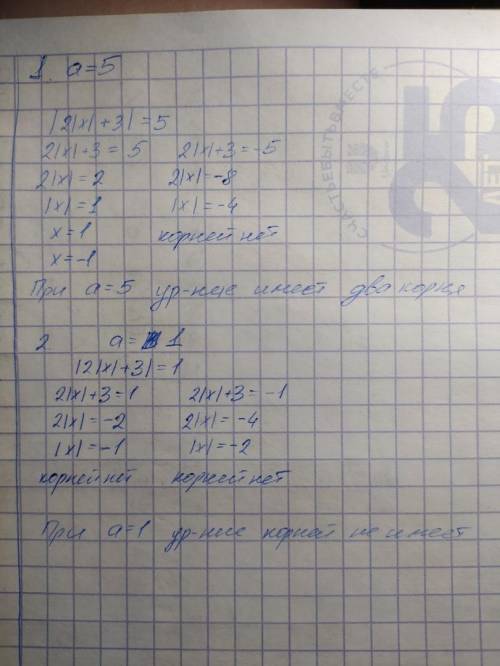 1. a=5
|2|x|+3|=5
2|x|+3=5 2|x|+3=-5
2|x|=2 2|x|=-8
|x|=1 |x|=-4
x=1 корней нет
x=-1
При a=5 ур-ние имеет два корня
2 a= 1
|2|x|+3|=1
2|x|+3=1 2|x|+3=-1
2|x|=-2 2|x|=-4
|x|=-1 |x|=-2
корней нет корней нет
При a=1 ур-ние корней не имеет
СЧАСТЬЕ БЫТЬ ВМЕСТЕ